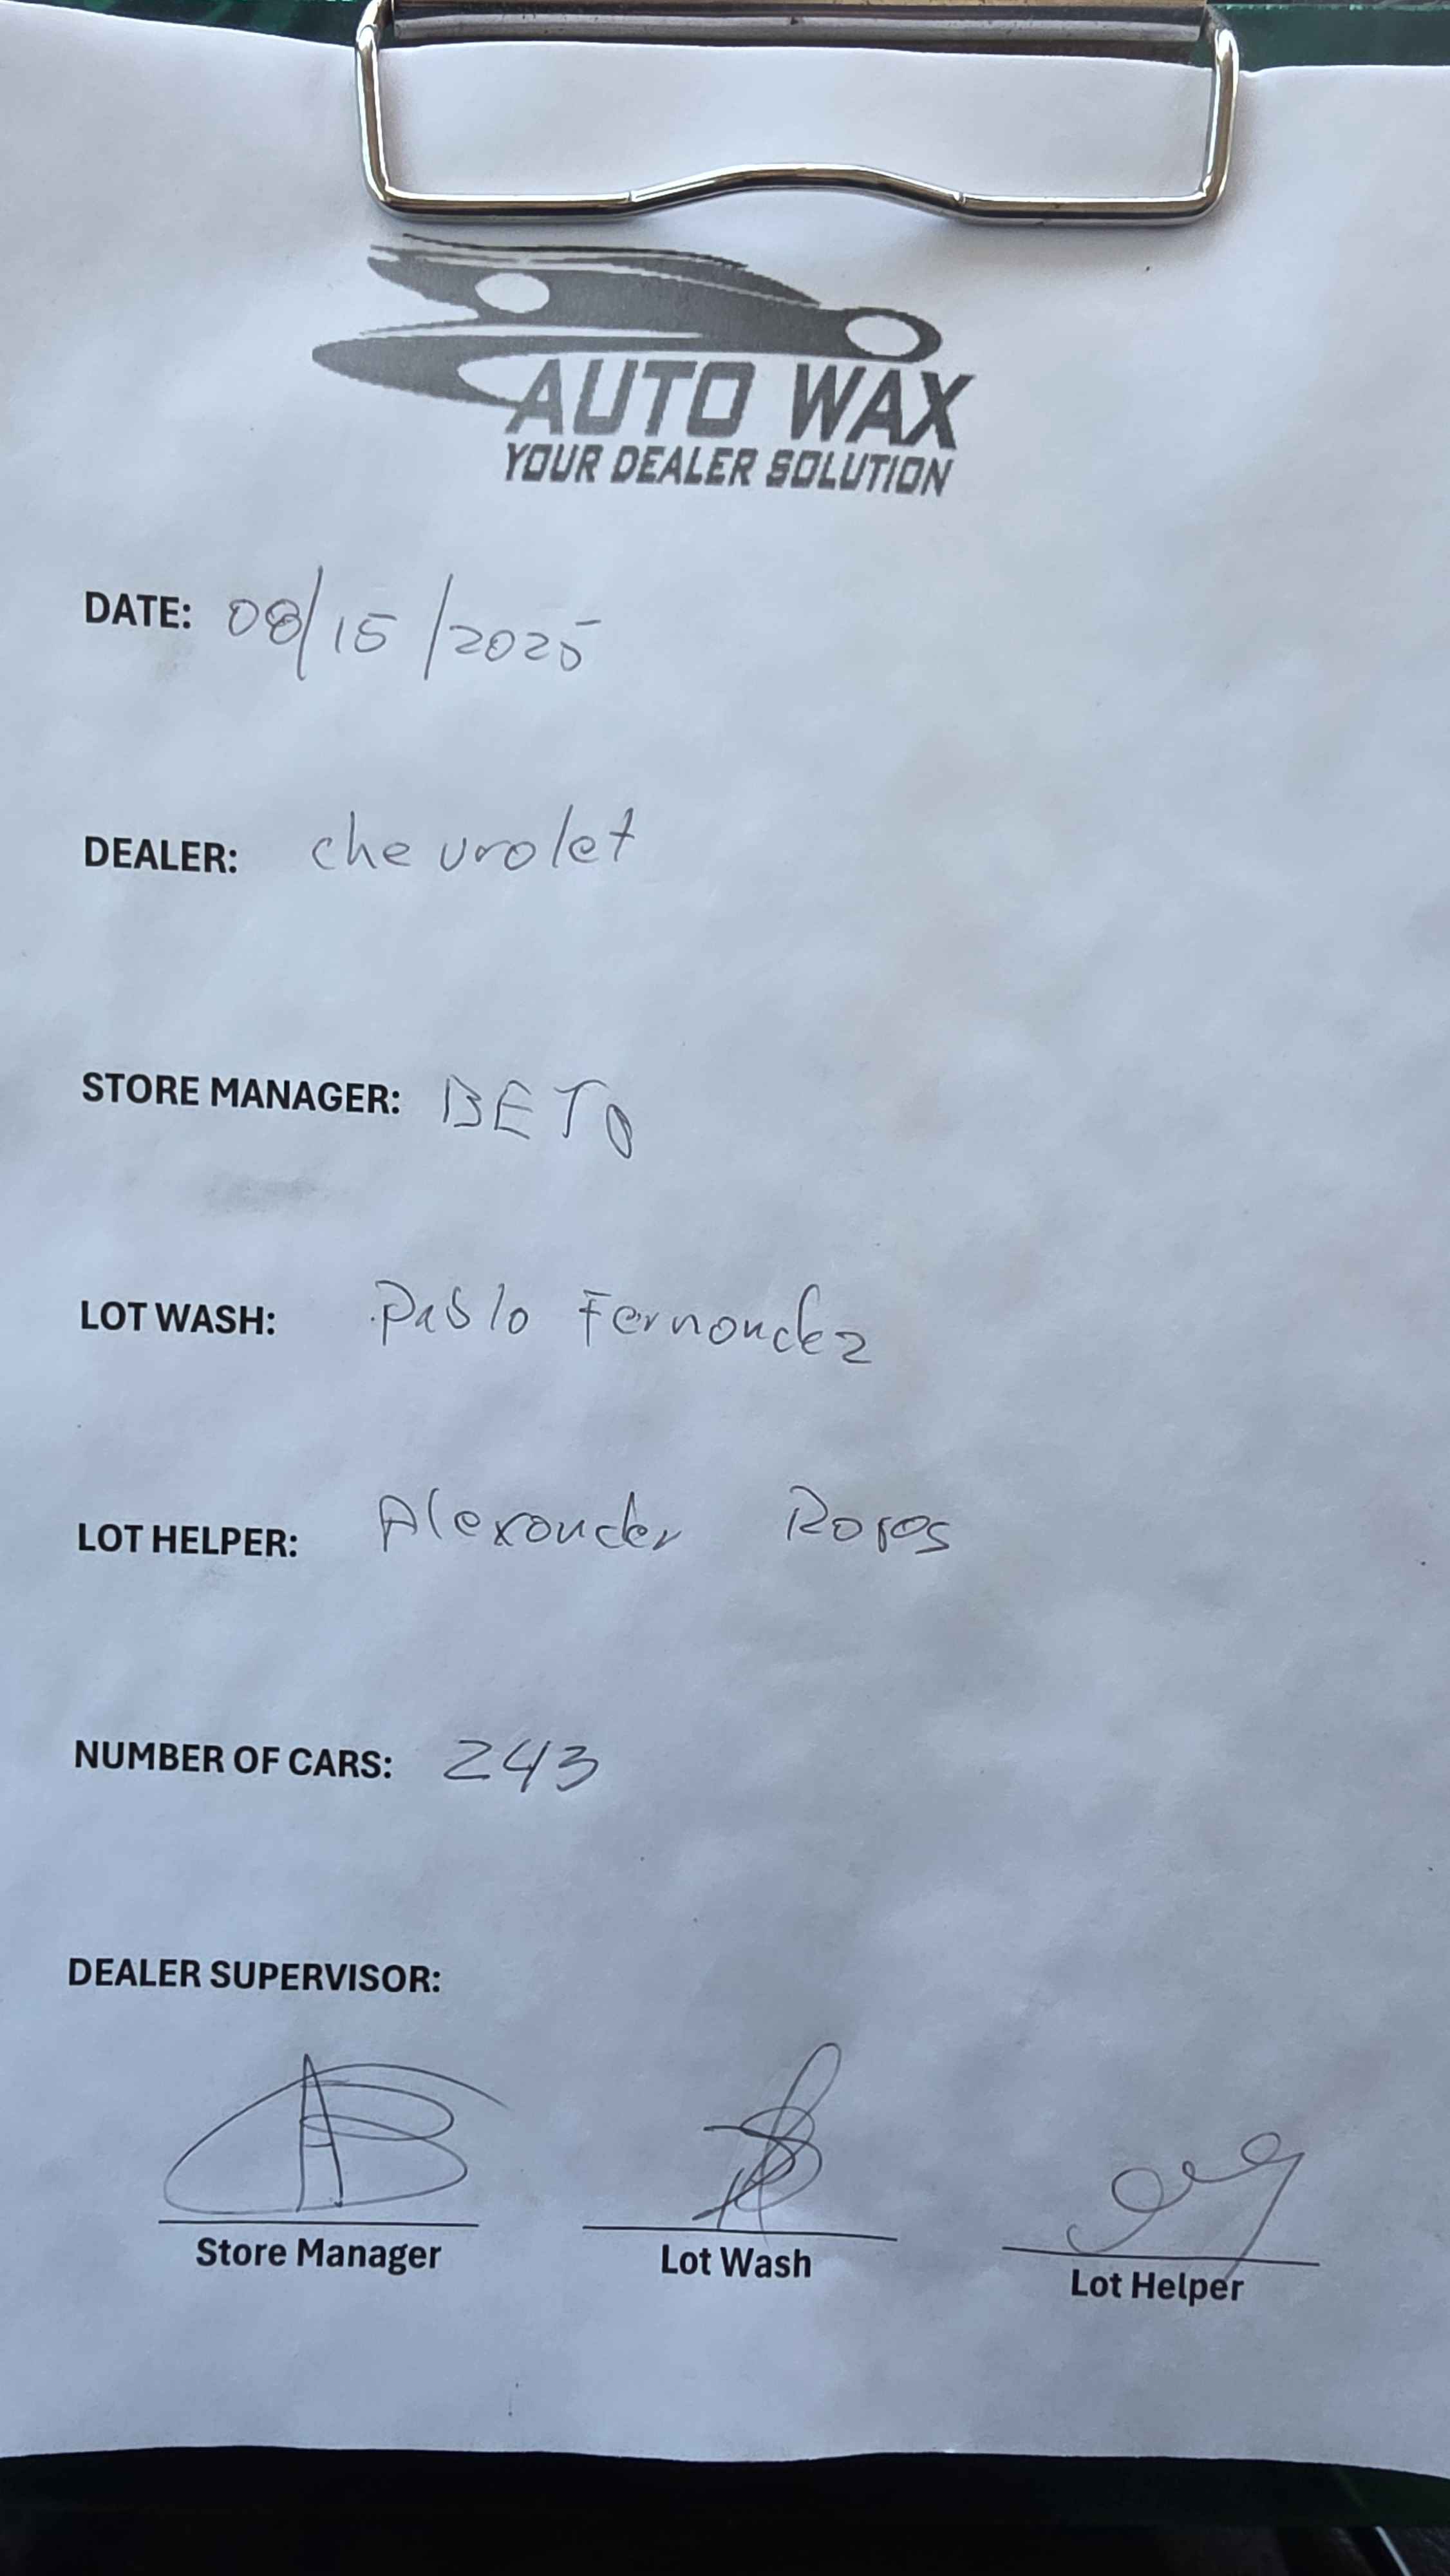 AUTO WAX
YOUR DEALER SOLUTION
DATE: 08/15/2025
DEALER: chevrolet
STORE MANAGER: BETO
LOT WASH: Pablo Fernandez
LOT HELPER: Alexander
NUMBER OF CARS: 243
DEALER SUPERVISOR:
Store Manager Lot Wash Lot Helper